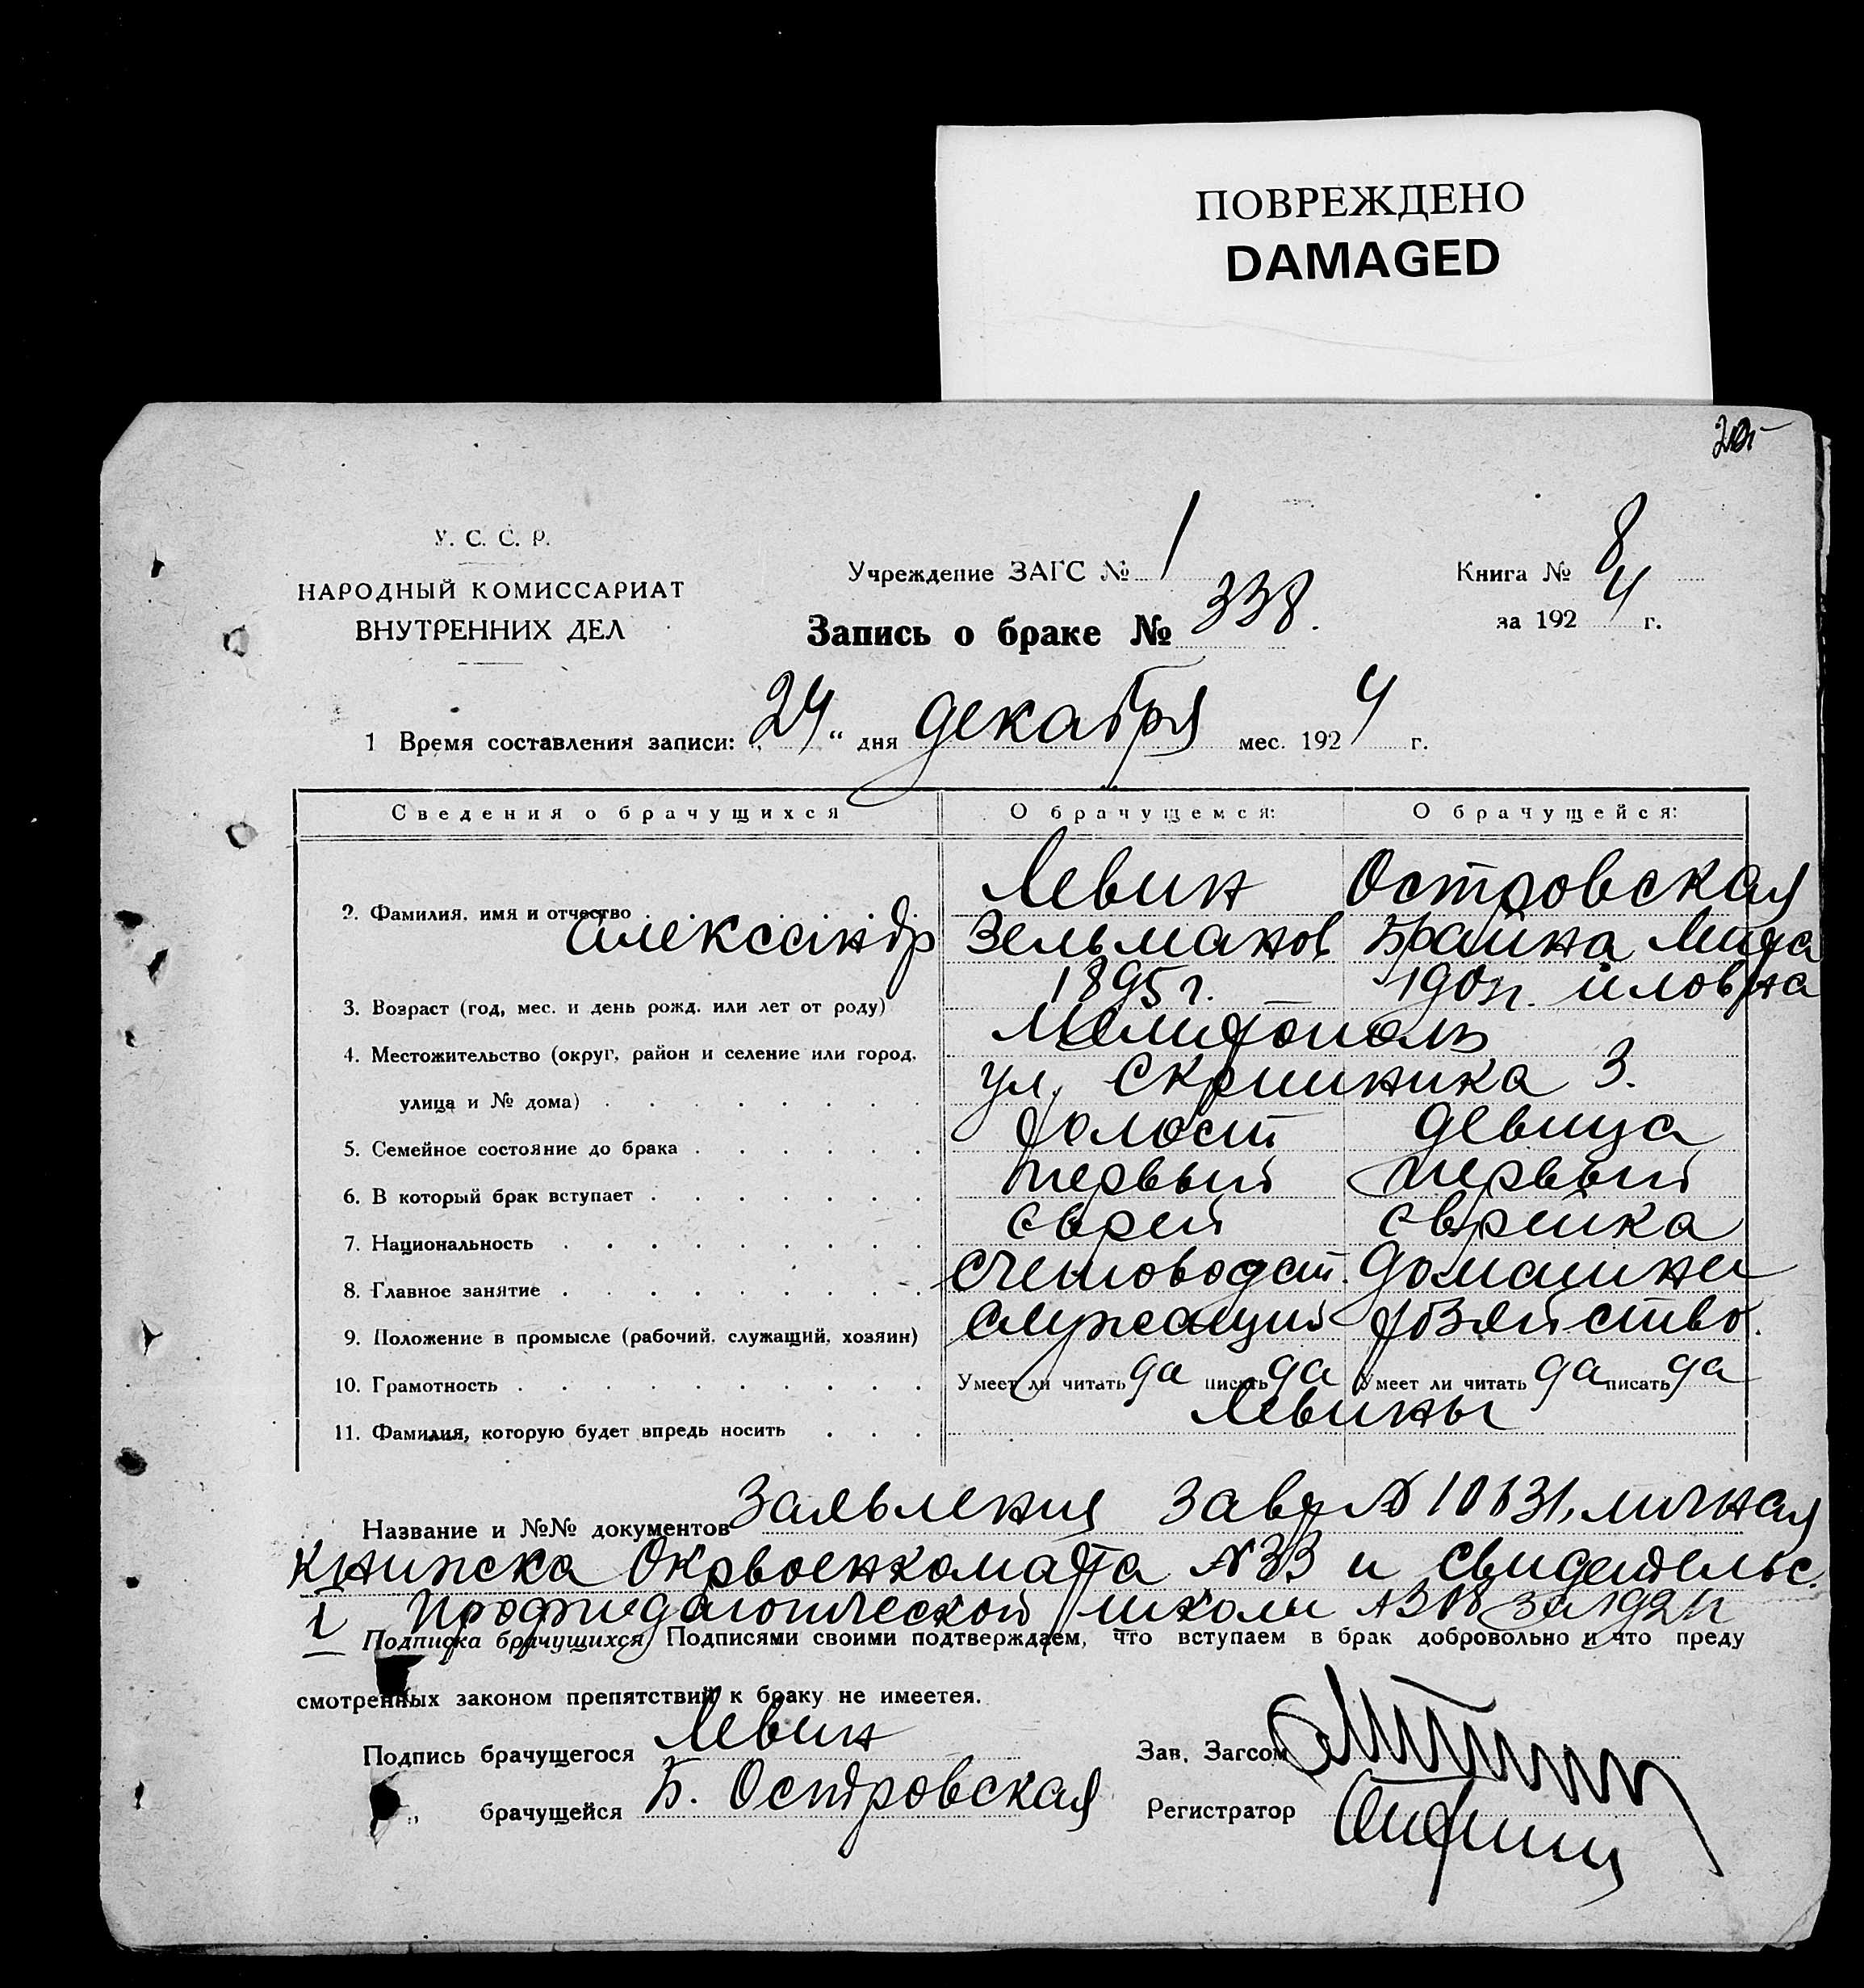 ПОВРЕЖДЕНО
DAMAGED
У. С. С. Р.
НАРОДНЫЙ КОМИССАРИАТ
ВНУТРЕННИХ ДЕЛ
Учреждение ЗАГС № 1
Книга № 8
за 1924 г.
Запись о браке № 338.
1 Время составления записи: „24“ дня декабря мес. 1924 г.
Сведения о брачущихся О брачущемся: О брачущейся:
Левин Островская
2. Фамилия, имя и отчество
Александр Зельманов Брайна
3. Возраст (год, мес. и день рожд. или лет от роду) 1895 г.
4. Местожительство (округ, район и селение или город, Мелитополь
улица и № дома) ул. Скрипника 3.
5. Семейное состояние до брака холост девица
6. В который брак вступает первый первый
7. Национальность еврей еврейка
8. Главное занятие счетоводст. домашнее
9. Положение в промысле (рабочий, служащий, хозяин) служащий хозяйство.
10. Грамотность Умеет ли читать да писать да Умеет ли читать да писать да
11. Фамилия, которую будет впредь носить Левины
Название и №№ документов Заявления № 10631, личная
книжка Окрвоенкомата №33 и свидетельс.
школы
Подписка брачущихся Подписями своими подтверждаем, что вступаем в брак добровольно и что преду
смотренных законом препятствий к браку не имеетея.
Подпись брачущегося Левин
Зав. Загсом
„ брачущейся Б. Островская
Регистратор